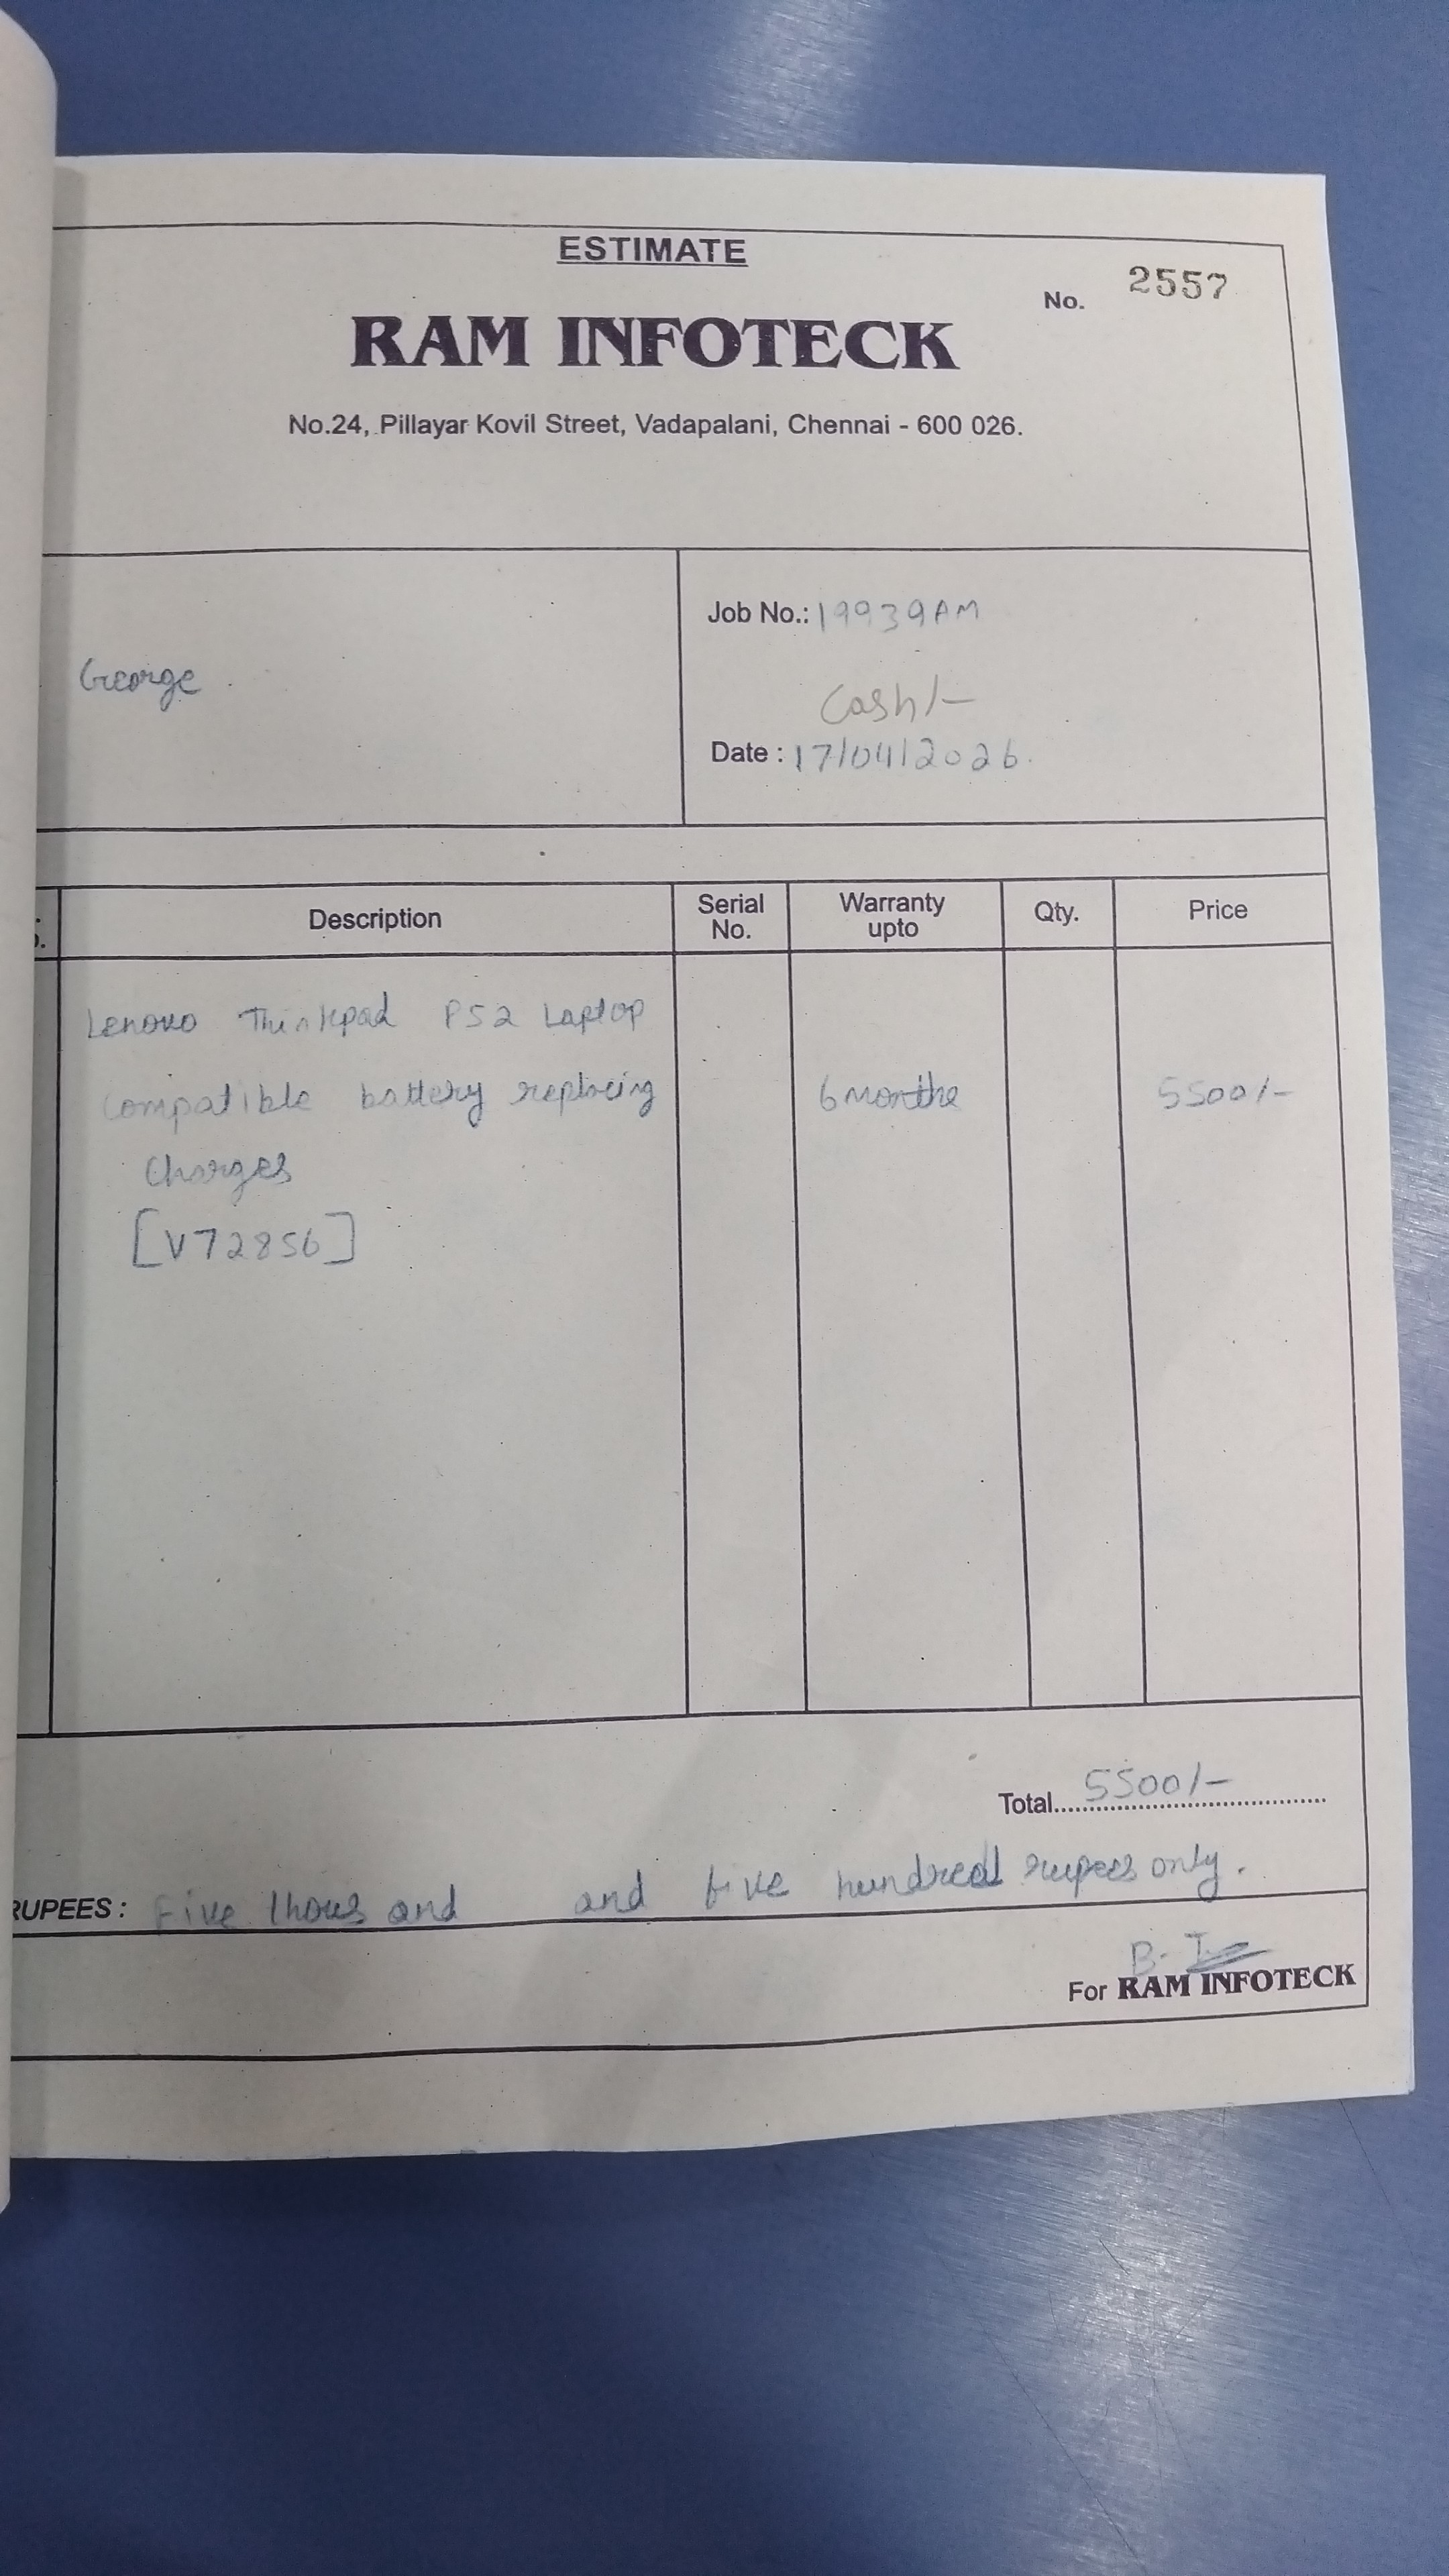 ESTIMATE
No. 2557
RAM INFOTECK
No.24, Pillayar Kovil Street, Vadapalani, Chennai - 600 026.
George
Job No.: 19939AM
Cash/-
Date : 17/04/2026.
Description Serial No. Warranty upto Qty. Price
Lenovo Thinkpad P52 Laptop
compatible battery replacing 6 months 5500/-
Charges
[V72856]
Total 5500/-
RUPEES : Five thousand and five hundred rupees only.
For RAM INFOTECK